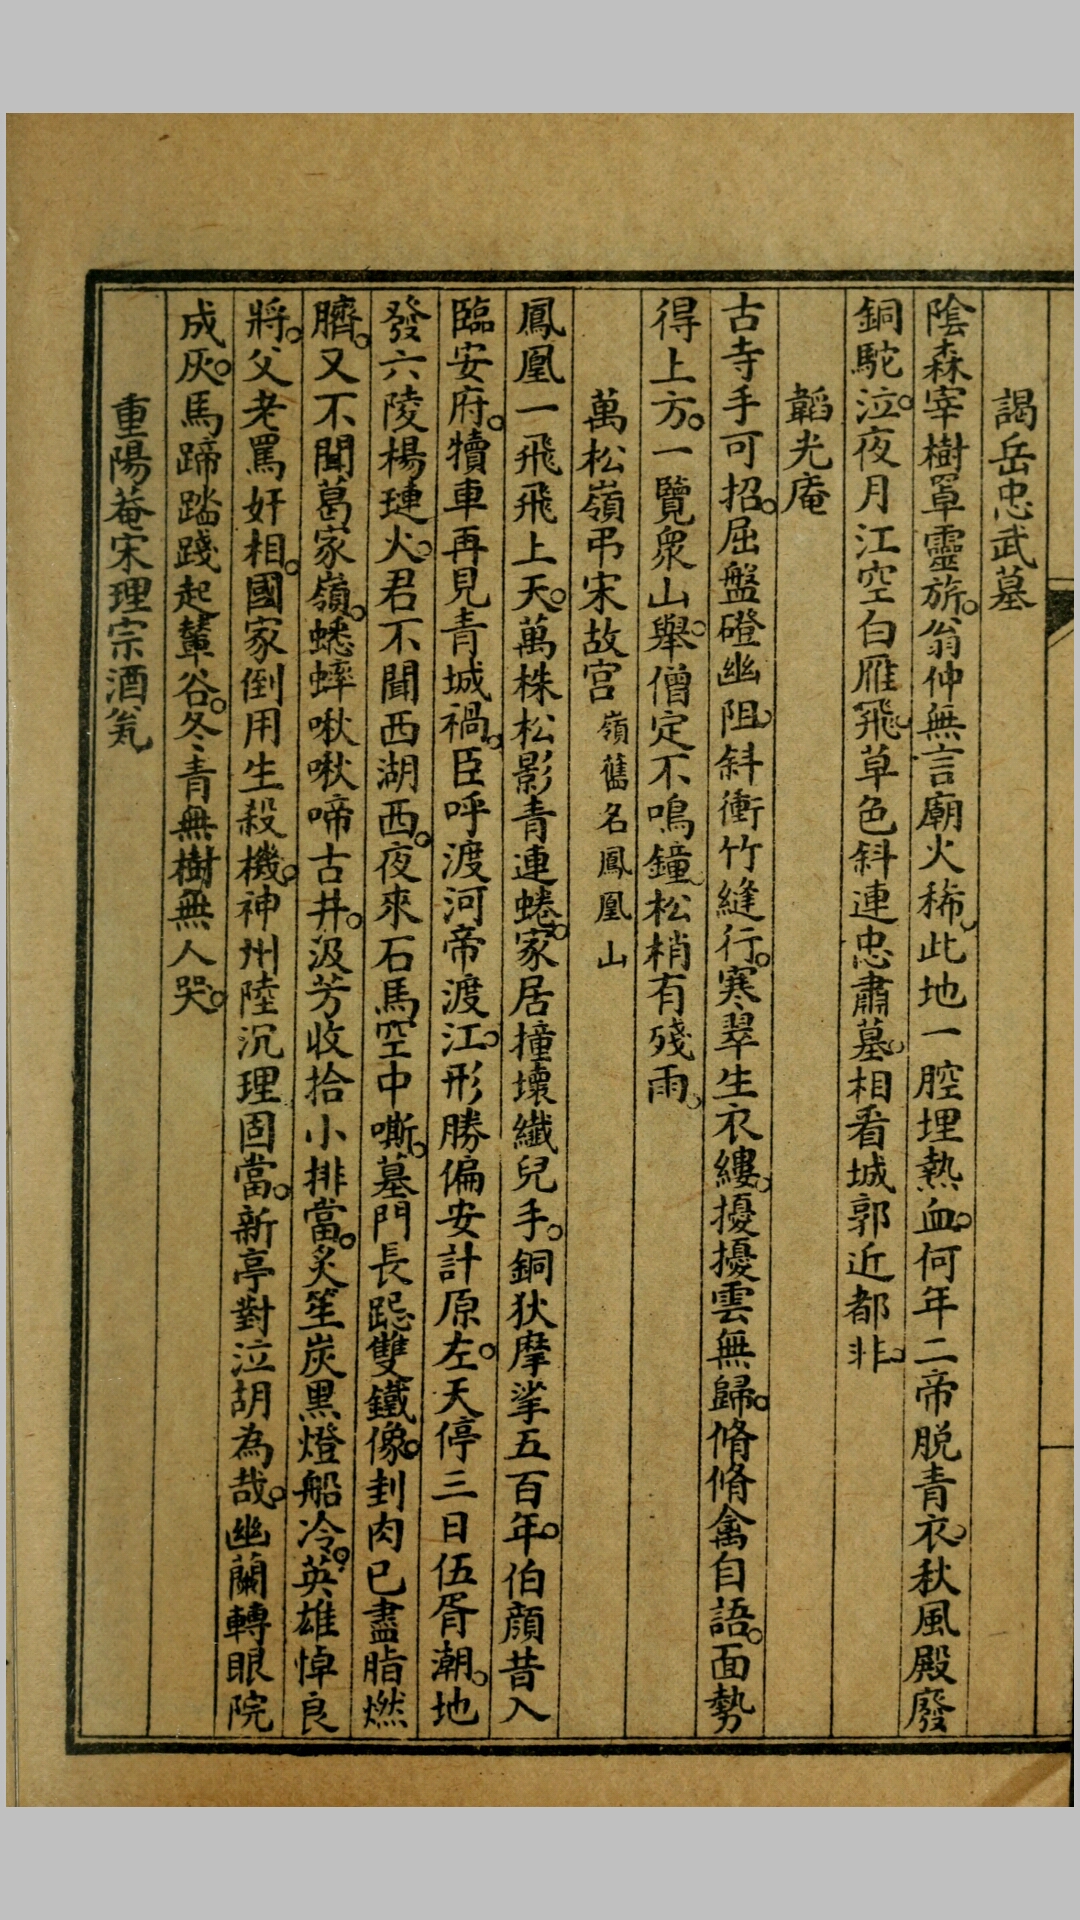 謁岳忠武墓
陰森宰樹罩靈旂。翁仲無言廟火稀。此地一腔埋熱血。何年二帝脱青衣。秋風殿廢
銅駝泣。夜月江空白雁飛。草色斜連忠肅墓。相看城郭近都非。
韜光庵
古寺手可招。屈盤磴幽阻。斜衝竹縫行。寒翠生衣縷。擾擾雲無歸。翛翛禽自語。面勢
得上方。一覽衆山舉。僧定不鳴鐘。松梢有殘雨。
萬松嶺弔宋故宫 嶺舊名鳳凰山
鳳凰一飛飛上天。萬株松影青連蜷。家居撞壞纖兒手。銅狄摩挲五百年。伯顔昔入
臨安府。犢車再見青城禍。臣呼渡河帝渡江。形勝偏安計原左。天停三日伍胥潮。地
發六陵楊璉火。君不聞西湖西。夜來石馬空中嘶。墓門長跽雙鐵像。刲肉已盡脂燃
臍。又不聞葛家嶺。蟋蟀啾啾啼古井。汲芳收拾小排當。炙笙炭黑燈船冷。英雄悼良
將。父老罵奸相。國家倒用生殺機。神州陸沉理固當。新亭對泣胡為哉。幽蘭轉眼院
成灰。馬蹄踏踐起輦谷。冬青無樹無人哭。
重陽菴宋理宗酒瓮